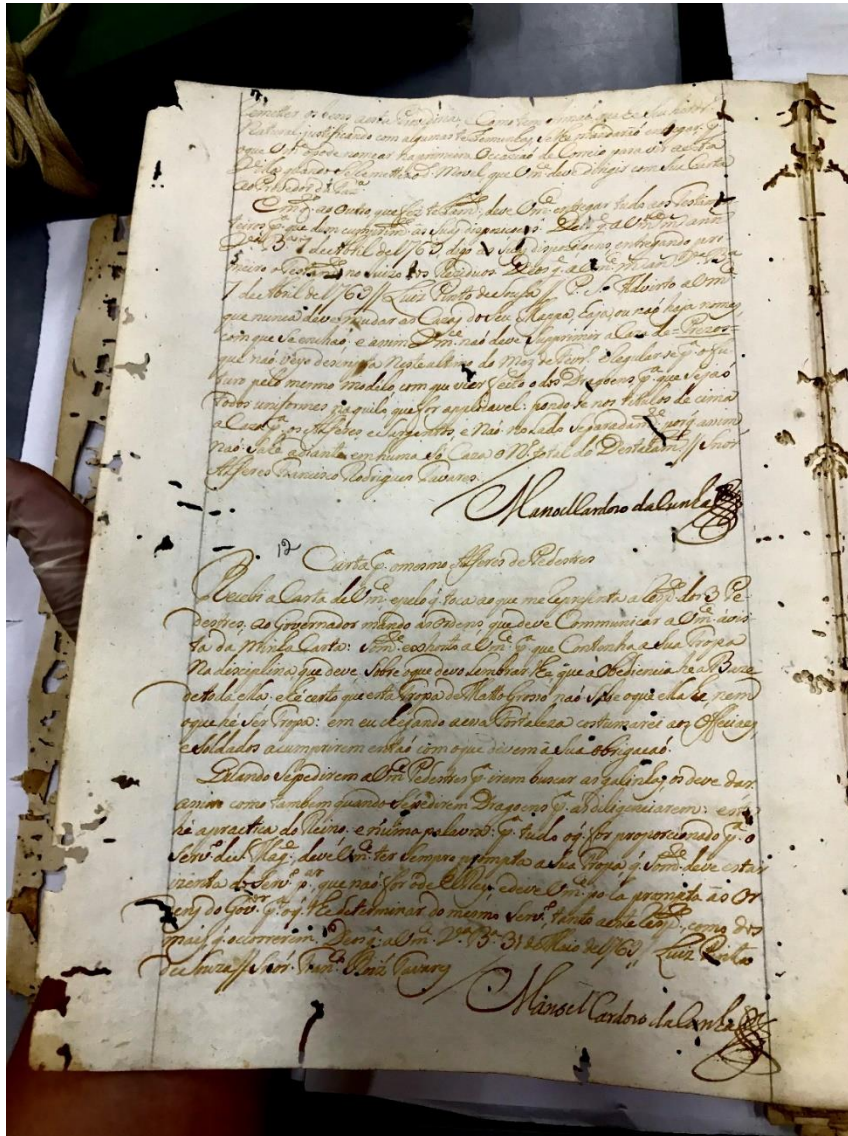 remetter os seus aesta Provedoria. Como tem o Irmaõ, que he Seu herd.º
Natural, justificando com algumas testemunhas, se lhe mandaraõ entregar: p.ª
o que Vm.ce o pode nomear na primeira Occaziaõ de Correio para vir a esta
Vila, quando se Remetterá o Movel, que Vm.ce deve dirigir com sua Carta
ao Provedor da Faz.ª
Em q.to ao Outro que fez testam.to deve Vm.ce entregar tudo aos Testam.
teiros p.ª que dem cumprim.to as Suas dispoziçoens. Deos g.e a Vm.ce m. an.s
V.ª B.ª 7 de Abril de 1769, digo as Suas dispoziçoens, entregando pri
meiro o Testam.to no Juizo dos Reziduos. Deos g.e a Vm.ce m. an.s V.ª B.ª
7 de Abril de 1769 // Luiz Pinto de Souza // P. S. Advirto a Vm.ce
que nunca deve mudar as Cazas do Seu Mappa, haja, ou naõ haja nomes
com que se enchaõ: e assim Vm.ce naõ deve Suprimir a Caza de = Prezos =
que naõ vejo descripta Neste ultimo do Mez de Fever.º e Regular se p.ª o fu
turo pelo mesmo modelo, com que vier feito o dos Dragoens p.ª que sejaõ
todos uniformes naquilo, que for applicavel: pondo se nos titulos de cima
a Caza p.ª os Alferes, e Sargentos, e Naõ no lado separadam.te porq. assim
naõ Sahe adiante em huma só Caza o N.º total do Destacam.to // Snor
Alferes Francisco Rodrigues Tavares.
Manoel Cardozo da Cunha
12
Carta p.ª o mesmo Alferes de Pedestres
Recebi a Carta de Vm.ce e pelo q. toca ao que me Reprezenta a resp.to dos 3 Pe
destres, ao Governador mando as Ordens que deve Communicar a Vm.ce á vis
ta da Minha Carta: Som.te exhorto a Vm.ce p.ª que Contenha a Sua Tropa
Na disciplina que deve sobre o que devo lembrar lhe que a Obediencia he a Baze
de toda ella: e he certo que esta Tropa de Matto Grosso naõ sabe o que ella he, nem
o que he ser Tropa: em eu chegando a essa Fortaleza costumarei aos Officiaes,
e Soldados a cumprirem entaõ com o que devem á Sua obrigaçaõ.
Quando se pedirem a Vm.ce Pedestres p.ª irem buscar as galinhas, os deve dar,
assim como tambem quando se pedirem Dragoens p.ª as diligenciarem: esta
he a practica do Reino: e n'huma palavra: p.ª tudo o q. for proporcionado p.ª o
Serv.º de S. Mag.e, deve Vm.ce ter sempre prompta a sua Tropa, q. Som.te deve estar
izenta do Serv.º p.ar que naõ for o de El Rey, e deve Vm.ce po la prompta ás Or
dens do Gov.or p.ª o q. lhe determinar do mesmo Serv.º, tanto a este resp.to, como dos
mais, q. occorrerem. Deos g.e a Vm.ce V.ª B.ª 31 de Maio de 1769 // Luiz Pinto
de Souza // Snor. Fran.co Roiz Tavares
Manoel Cardozo da Cunha